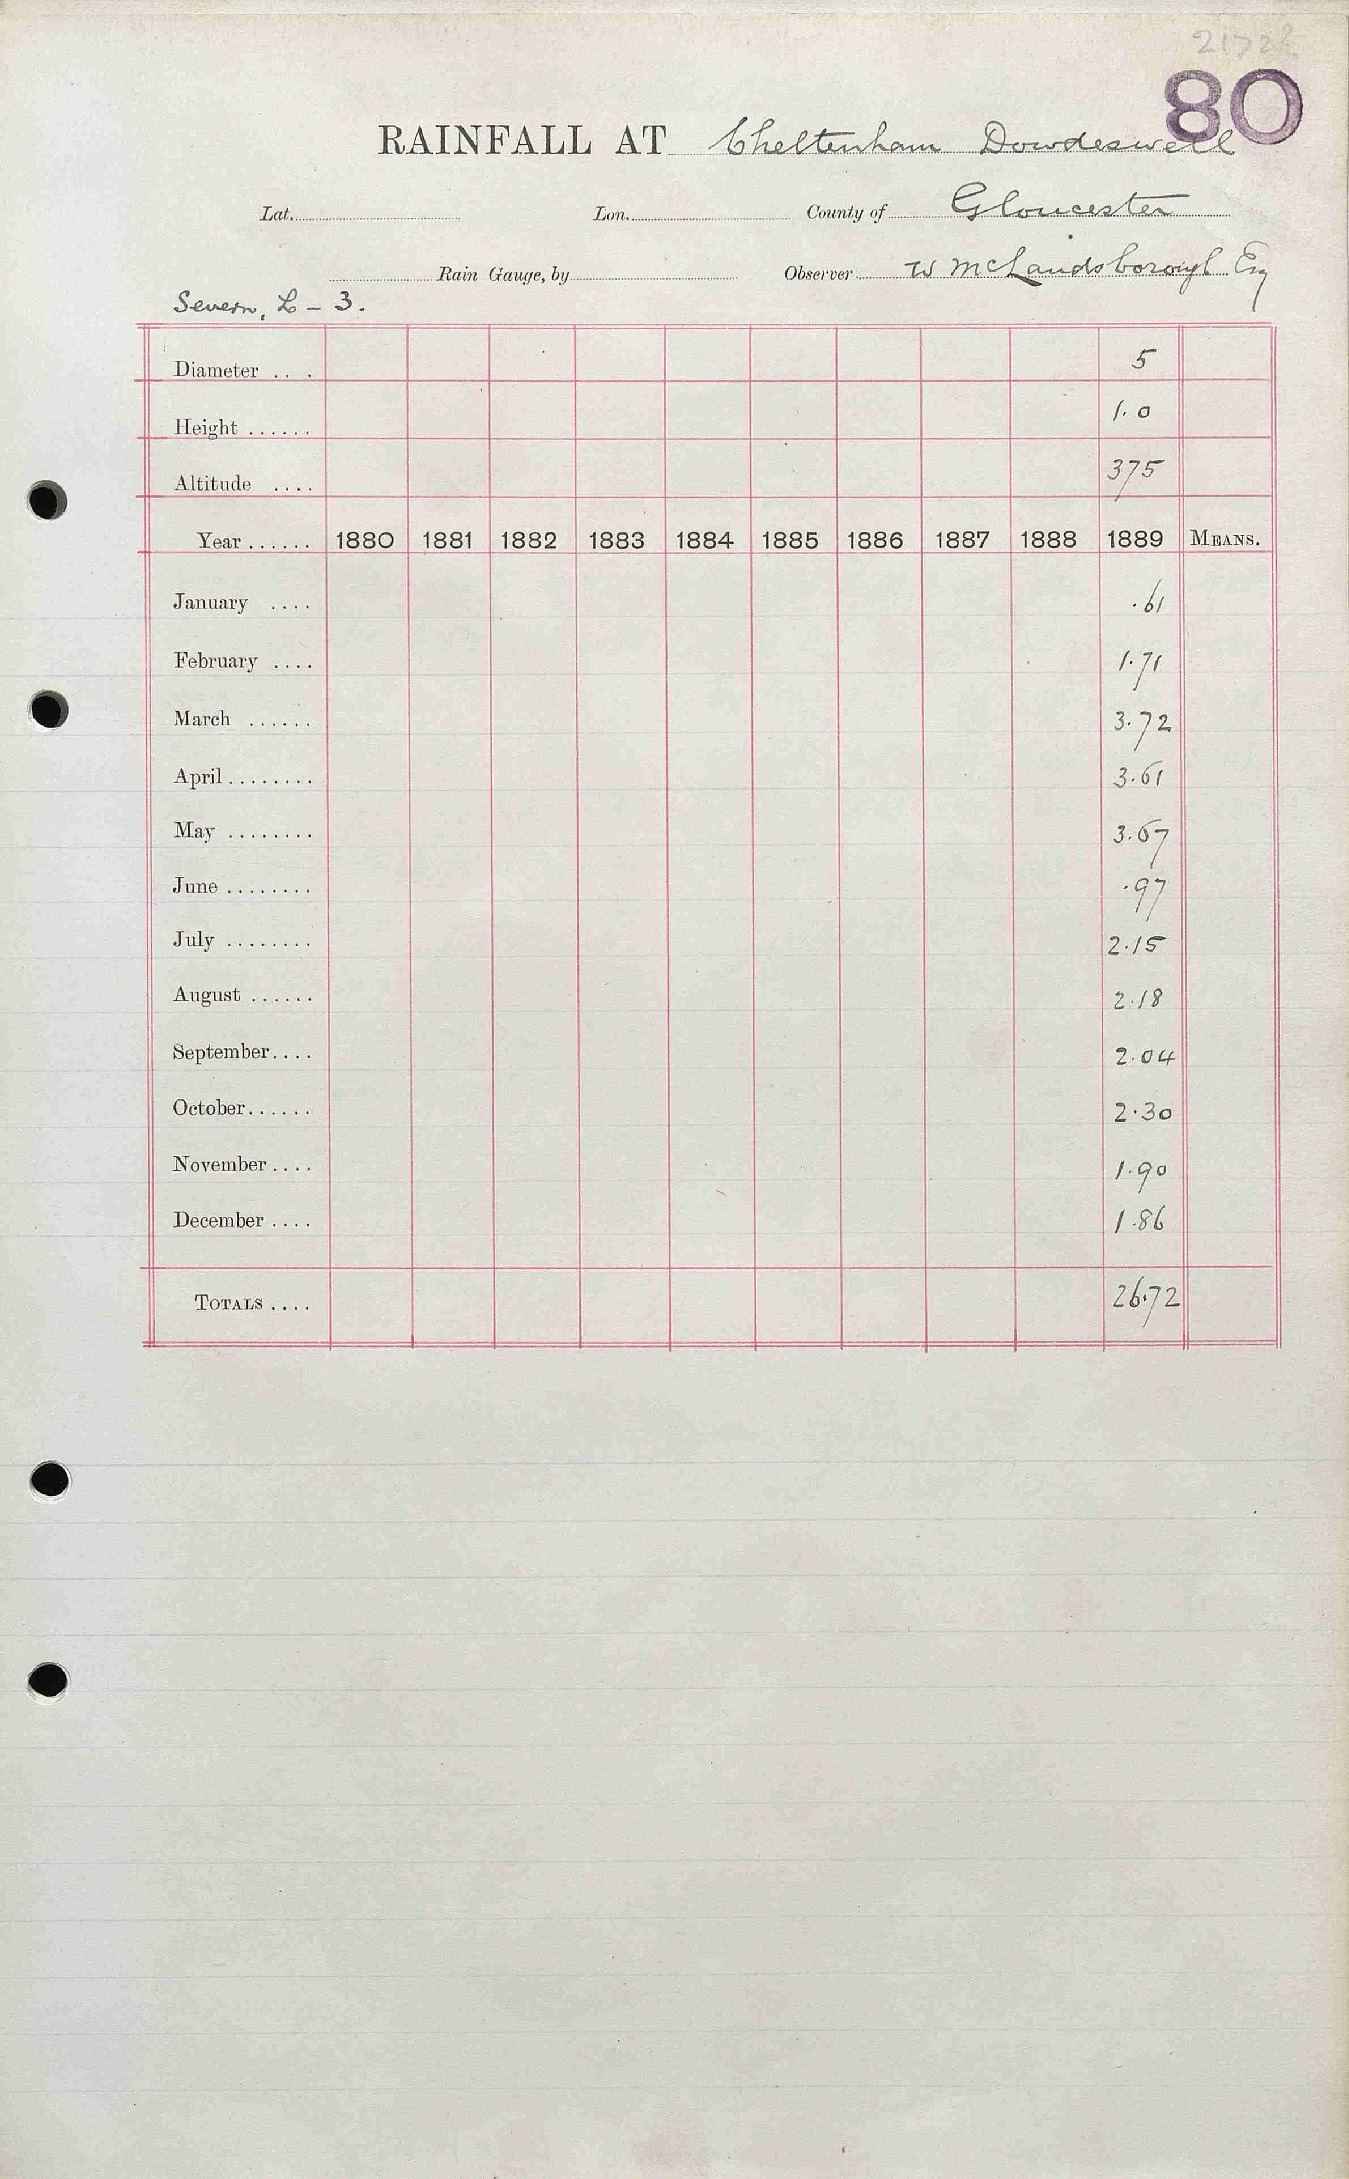 80
RAINFALL AT Cheltenham Dowdeswell
Lat. Lon. County of Gloucester
Rain Gauge, by Observer W McLandsborough Esq
Severn, L - 3.
Diameter . . . 5
Height ...... 1.0
Altitude .... 375
Year ...... 1880 1881 1882 1883 1884 1885 1886 1887 1888 1889 MEANS.
January .... .61
February .... 1.71
March ...... 3.72
April ........ 3.61
May ........ 3.67
June ........ .97
July ........ 2.15
August ...... 2.18
September.... 2.04
October...... 2.30
November .... 1.90
December .... 1.86
TOTALS .... 26.72